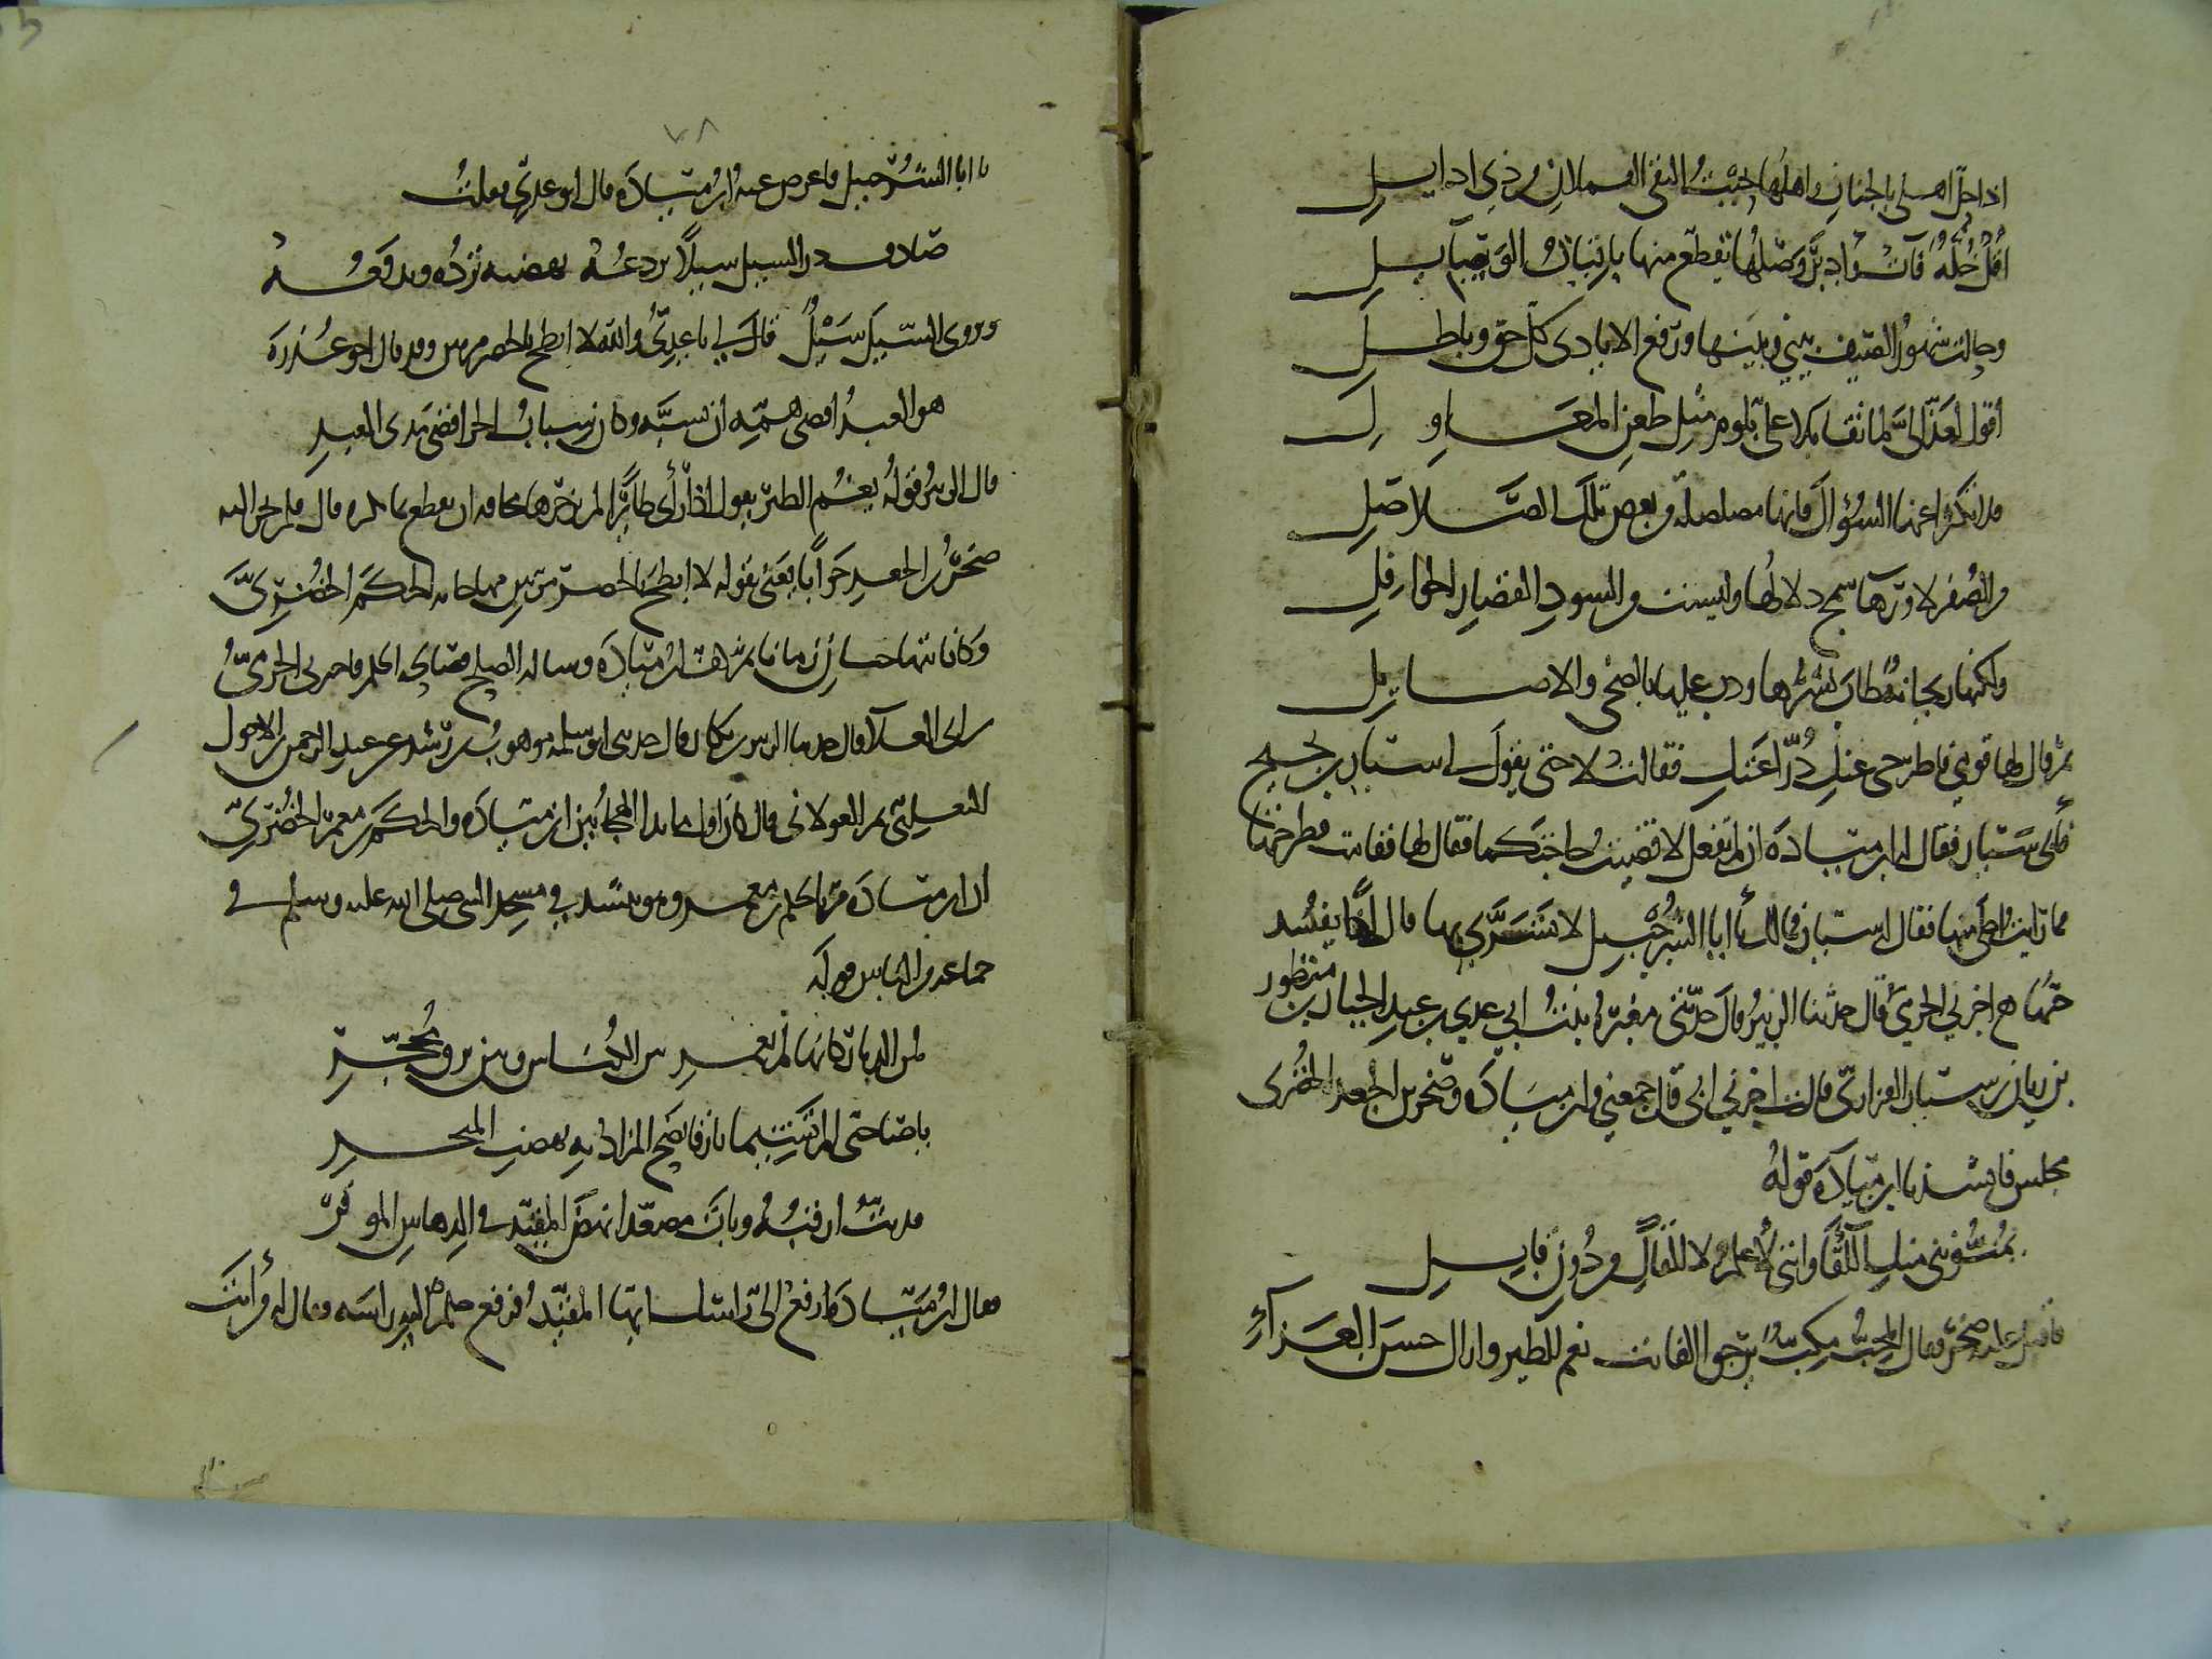 اذا حل اهلي بالجناب واهلها بحيث التقى الغلان من ذي ارايل
اقل خلة بانت وادبر وصلها تقطع منها باقيات الوسايل
وحالت شهور الصيف بيني وبينها ورفع الاعادى كل حق وباطل
اقول لعذالى لما تقابلا على بلوم مثل طعن المعاول
فلا تكثرا عنها السؤال فانها مصلصلة من بعض تلك الصلاصل
من الصفر لا ورهاء سمج دلالها وليست من السود القصار الحوافل
ولكنها ريحانة طاب نشرها وردت عليها بالضحى والاصايل
ثم قال لها قومي فاطرحى عنك دراعتك فقالت لا حتى يقول لي سيار بن نجيح
فأبى سيار فقال له ابن ميادة ان لم تفعل لا قضيت حاجتكما فقال لها فقامت فطرحتها
فما رايت احلى منها فقال له سيار فمالك يا ابا الشرحبيل لا تشتريها قال اذا يفسد
حبها ح اخبرني الحرمي قال حدثنا الزبير قال حدثني مغيرة بنت ابي عدي بن عبد الجبار بن منظور
بن زبان بن سيار الفزارى قالت اخبرني ابي قال جمعني وابن ميادة وصخر بن الجعد الخضرى
مجلس فانشدنا ابن ميادة قوله
يمنونني منك اللقاء وانني لاعلم لا القاك من دون قابل
فاقبل عليه صخر فقال المحب مكب يرجو الفائت نعم للطير واراك حسن العزاء
يا ابا الشرحبيل فاعرض عنه ابن ميادة قال ابو عدي فقلت
صادف درء السيل سيلا يردعه بهضبة ترده وتدفعه
ويروى درء السيل سيل قال لي يا عدي والله لا انطح بالخضر مرتين وقد قال اخو عذرة
هو العبد اقصى همه ان تسبه وكان سباب الحر اقصى مدى العبد
قال الزبير قوله يغنم الطير يقول اذا رأى طائرا لم يزجرها مخافة ان يقطع ما يكره قال فلم يحر اليه
صخر بن الجعد جوابا يعنى بقوله لا انطح بالخضر مرتين مهاجاته الحكم الخضرى
وكانا تهاجيا زمانا ثم كف ابن ميادة وساله الصلح فصالحه الحكم فاخبرني الحرمي
بن ابي العلاء قال حدثنا الزبير بن بكار قال حدثني ابو سلمة موهوب بن رشيد عن عبد الرحمن بن الاحول
التغلبي ثم الخولاني قال كان اول ما بدا الهجاء بين ابن ميادة والحكم بن معمر الخضري
ان ابن ميادة مر بالحكم بن معمر وهو ينشد في مسجد النبي صلى الله عليه وسلم في
جماعة من الناس قوله
لمن الديار كانها لم تعمر بين الكناس وبين برق محجر
يا صاحبي الم تشيما بارقا نضح المزاد به بهضب المنحر
قد بت ارقبه وبات مصعدا نهض المقيد في الدهاس الموقر
فقال ابن ميادة ارفع الى راسك ايها المنشد فرفع حكم اليه راسه فقال له من أنت